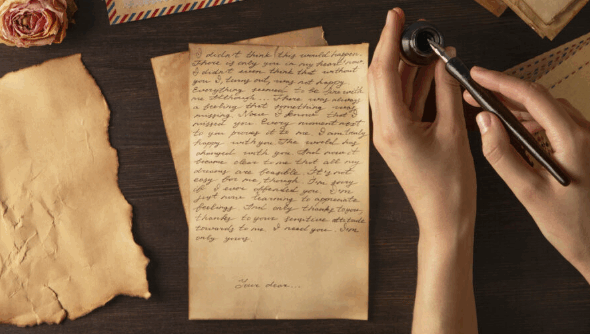 I didn't think this would happen.
There is only you in my heart now.
I didn't even think that without
you I, turns out, was not happy.
Everything seemed to be fine with
me although... There was always
a feeling that something was
missing. Now I know that I
missed you. Every moment next
to you proves it to me. I am truly
happy with you. The world has
changed with you. And now it
became clear to me that all my
dreams are feasible. It's not
easy for me, though. I'm sorry
if I ever offended you. I'm
just now learning to appreciate
feelings. And only thanks to you,
thanks to your sensitive attitude
towards to me. I need you. I'm
only yours
Your dear...